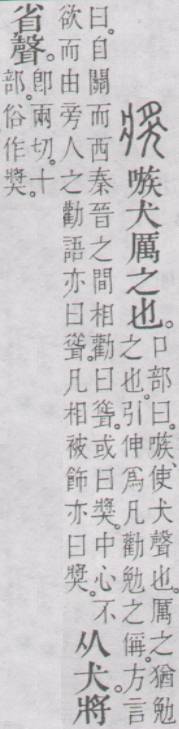 獎 嗾犬厲之也。
口部曰。嗾、使犬聲也。厲之猶勉
之也。引伸爲凡勸勉之偁。方言
曰。自關而西秦晉之間相勸曰聳。或曰獎。中心不
欲而由旁人之勸語亦曰聳。凡相被飾亦曰獎。
从犬。將
省聲。
卽兩切。十
部。俗作獎。